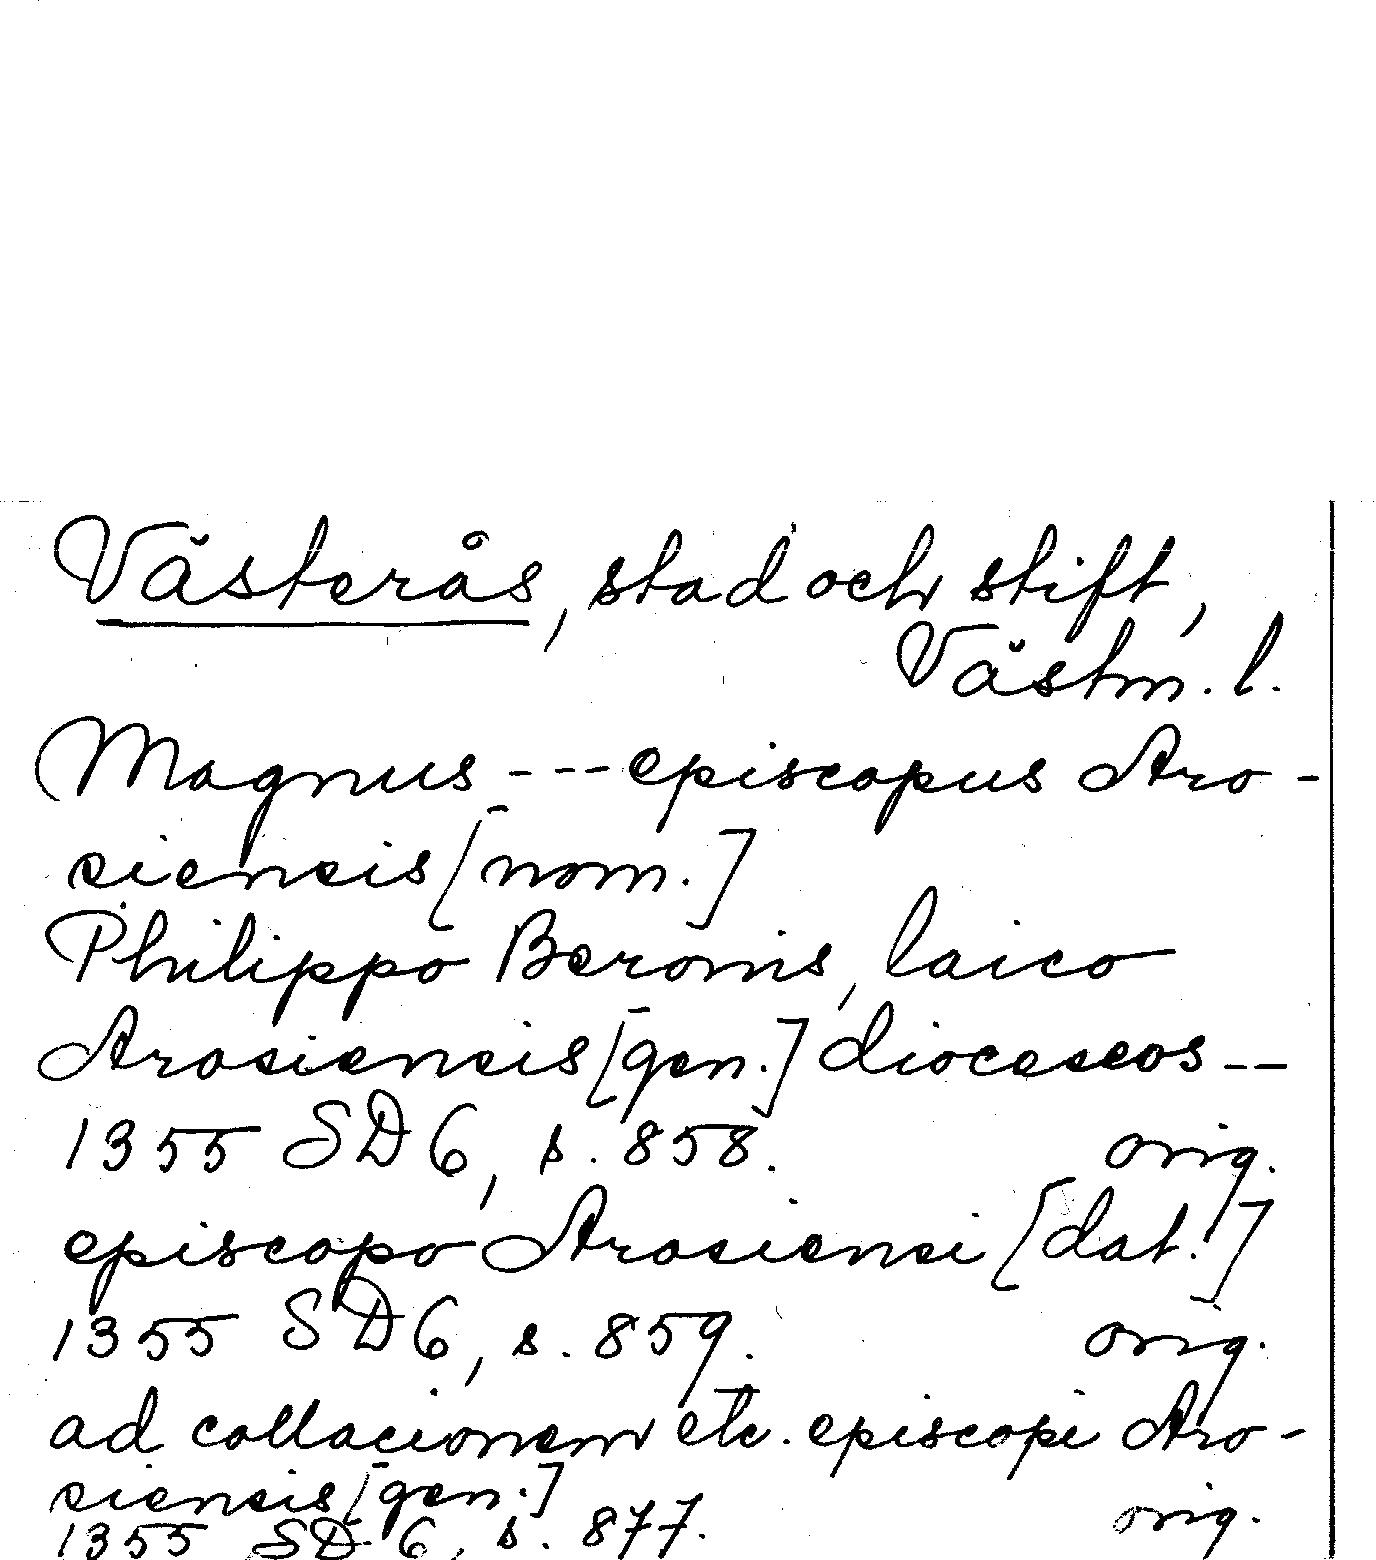 Västerås, stad och stift,
Västm. l.
Magnus --- episcopus Aro-
siensis [nom.]
Philippo Beronis, laico
Arosiensis [gen.] dioceseos --
1355 SD 6, s. 858. orig.
episcopo Arosiensi [dat.]
1355 SD 6, s. 859. orig.
ad collacionem etc. episcopi Aro-
siensis [gen.]
1355 SD 6, s. 877. orig.